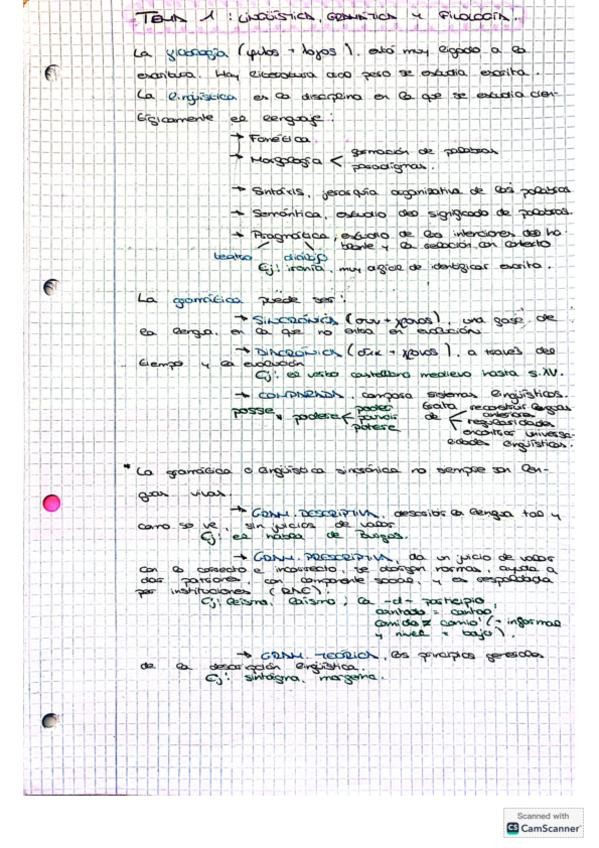 TEMA 1: LINGÜÍSTICA, GRAMÁTICA Y FILOLOGÍA.
La filología (φιλος + λογος), está muy ligado a la
escritura. Hay literatura oral pero se estudia escrita.
La lingüística es la disciplina en la que se estudia cien-
tíficamente el lenguaje:
→ Fonética
→ Morfología < formación de palabras
paradigmas.
→ Sintaxis, jerarquía organizativa de las palabras
→ Semántica, estudio del significado de palabras.
→ Pragmática, estudio de las intenciones del ha-
blante y la relación con contexto
teatro diálogo
Ej: ironía, muy difícil de identificar escrita.
La gramática puede ser:
→ SINCRÓNICA (συν + χρονος), una fase de
la lengua, en la que no entra en evolución.
→ DIACRÓNICA (δια + χρονος), a través del
tiempo y la evolución
Ej: el verbo castellano medievo hasta s.XV.
→ COMPARADA, compara sistemas lingüísticos.
posse, potere < poder
pouvoir
potere
trata de < reconstruir lenguas
anteriores
regularidades
encontrar universa-
lidades lingüísticas.
* La gramática o lingüística sincrónica no siempre son len-
guas vivas.
→ GRAM. DESCRIPTIVA, describir la lengua tal y
como se ve, sin juicios de valor
Ej: el habla de Burgos.
→ GRAM. PRESCRIPTIVA, da un juicio de valor
con lo correcto e incorrecto, se otorgan normas, ayuda a
dar patrones, con componente social, y es respaldada
por instituciones (RAE).
Ej: leísmo, laísmo; la -d- participio,
cantado = cantao,
comida ≠ comía (- informal
y nivel = bajo).
→ GRAM. TEÓRICA, los principios generales
de la descripción lingüística.
Ej: sintagma, morfema.
Scanned with
CS CamScanner